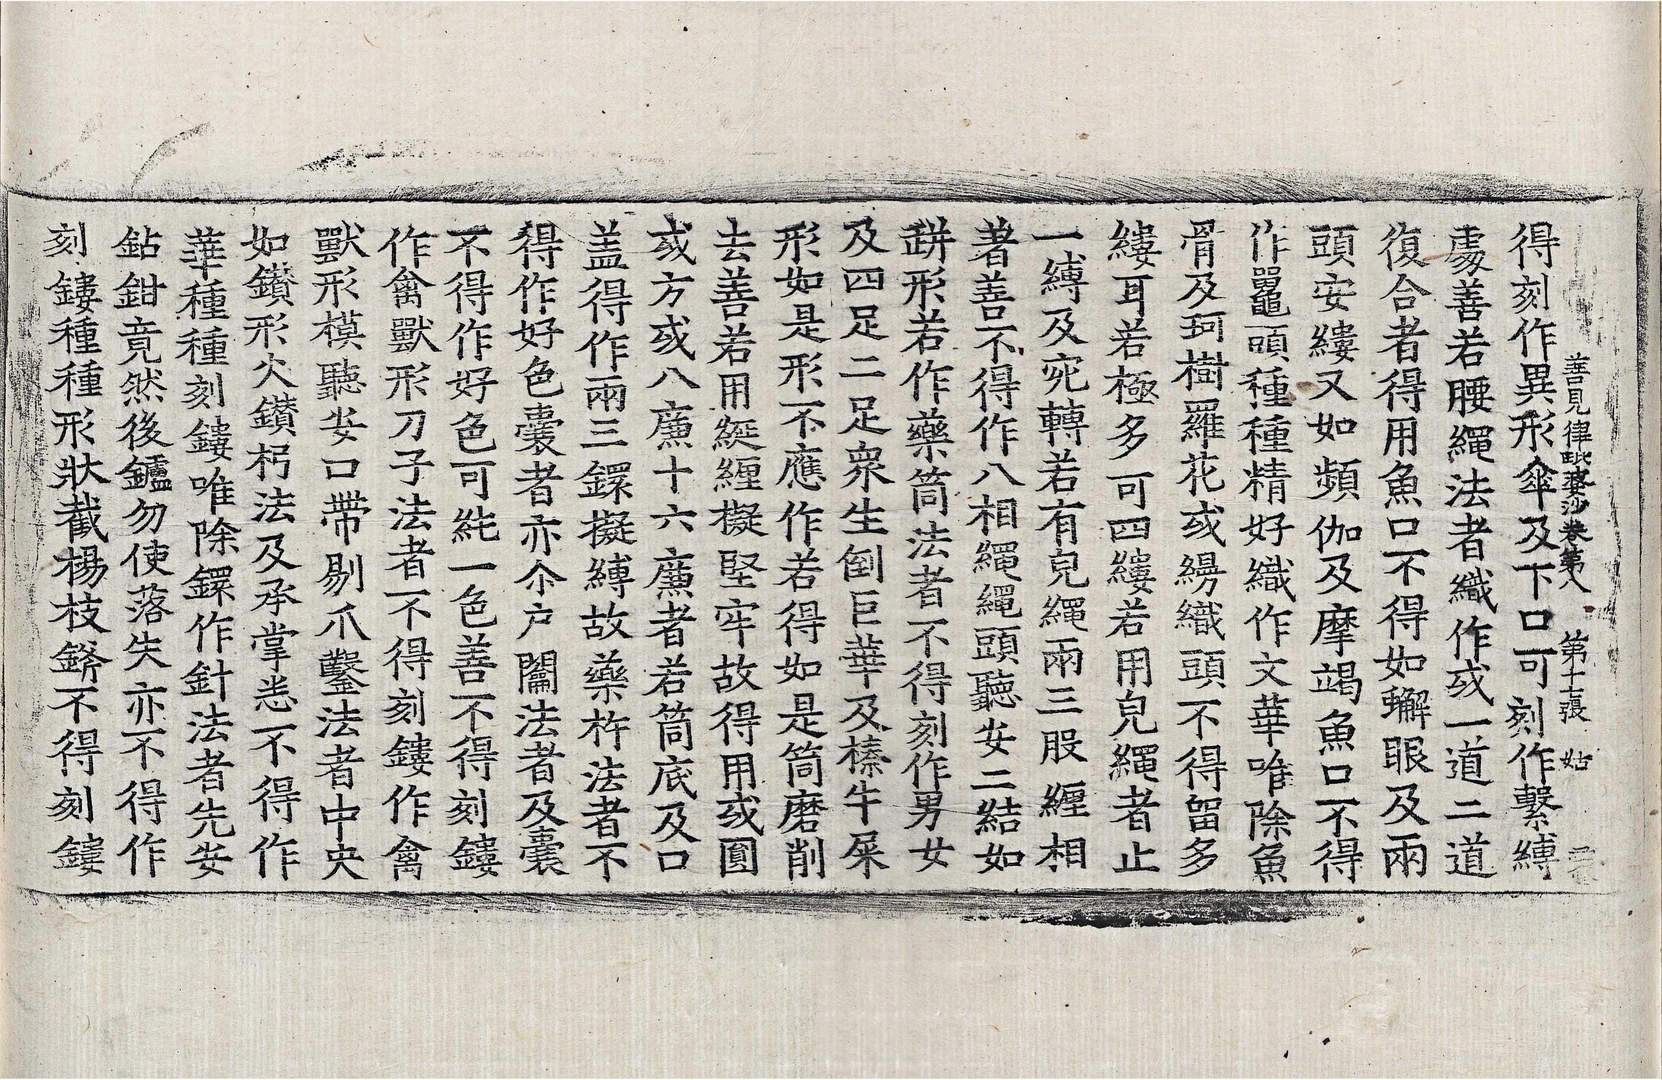 善見律毗婆沙卷第八　第十二張　姑
得刻作異形傘及下口可刻作繫縛
處善若腰繩法者織作或一道二道
復合者得用魚口不得如蠏眼及兩
頭安縷又如頻伽及摩竭魚口不得
作鼉頭種種精好織作文華唯除魚
骨及珂樹羅花或縎織頭不得留多
縷耳若極多可四縷若用皃繩者止
一縛及宛轉若有皃繩兩三股纏相
著善不得作八相繩繩頭聽安二結如
缾形若作藥筒法者不得刻作男女
及四足二足衆生倒巨華及榛牛屎
形如是形不應作若得如是筒磨削
去善若用綖纏擬堅牢故得用或圓
或方或八廉十六廉者若筒底及口
盖得作兩三鐶擬縛故藥杵法者不
得作好色囊者亦尒户闔法者及囊
不得作好色可純一色善不得刻鏤
作禽獸形刀子法者不得刻鏤作禽
獸形模聽安口帶剔爪鑿法者中央
如鑽形火鑽杇法及承掌悉不得作
華種種刻鏤唯除鐶作針法者先安
鉆鉗竟然後鑢勿使落失亦不得作
刻鏤種種形狀截楊枝錛不得刻鏤